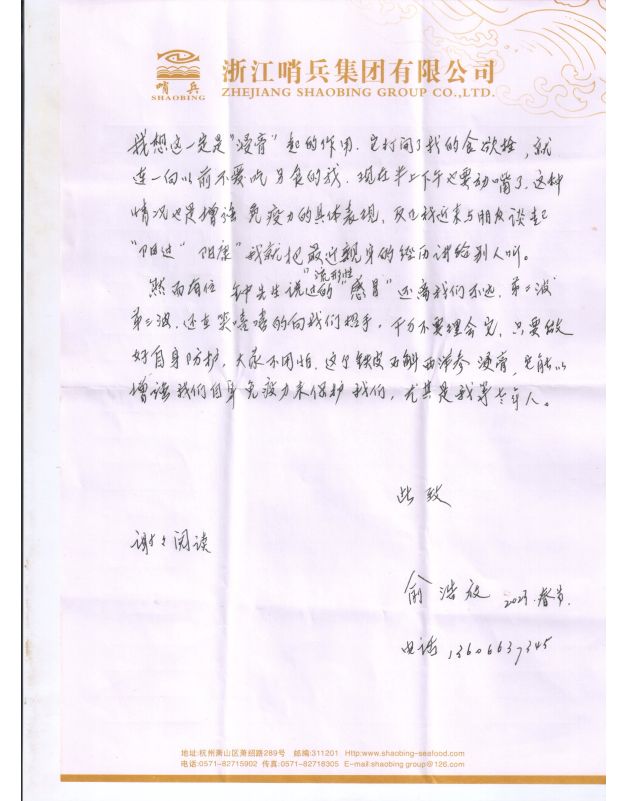 哨兵
SHAOBING
浙江哨兵集团有限公司
ZHEJIANG SHAOBING GROUP CO.,LTD.
我想这一定是“浸膏”起的作用.它打开了我的食欲栓,就
连一向以前不要吃另食的我.现在半上下午也要动嘴了.这种
情况也是增强免疫力的具体表现,及也我近来与朋友谈起
“阳过”“阳康”我就把最近亲身的经历讲给别人听。
“流形性
然而有位 钟先生说过的“感冒”还离我们不远.第二波
第三波.还在笑嘻嘻的向我们招手,千万不要理会它.只要做
好自身防护,大家不用怕.这个铁皮石斛西洋参浸膏,它能以
增强我们自身免疫力来保护我们,尤其是我等老年人。
此致
谢谢阅读
俞浩放 2023.春节.
电话 13606637345
地址:杭州萧山区萧绍路289号 邮编:311201 Http:www.shaobing-seafood.com
电话:0571-82715902 传真:0571-82718305 E-mail:shaobing group@126.com